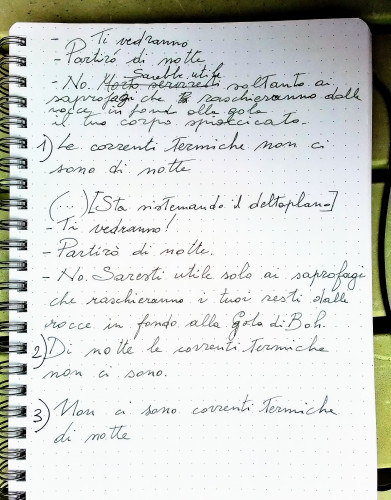 - Ti vedranno
- Partirò di notte
Sarebbe utile
- No. soltanto ai
saprofagi che raschieranno dalle
rocce in fondo alla gola
il tuo corpo spiaccicato.
1) Le correnti termiche non ci
sono di notte
(...) [Sta sistemando il deltaplano]
- Ti vedranno!
- Partirò di notte.
- No. Saresti utile solo ai saprofagi
che raschieranno i tuoi resti dalle
rocce in fondo alla Gola di Boh.
2) Di notte le correnti termiche
non ci sono.
3) Non ci sono correnti termiche
di notte